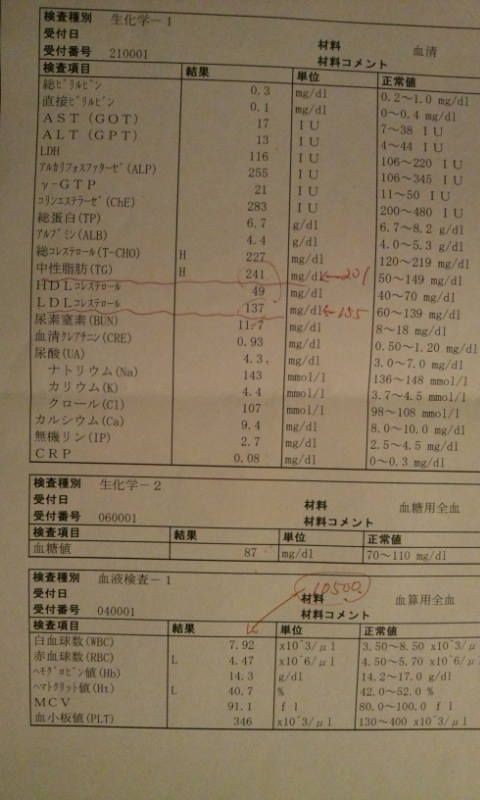 検査種別 生化学－1
受付日 材料 血清
受付番号 210001 材料コメント
検査項目 結果 単位 正常値
総ﾋﾞﾘﾙﾋﾞﾝ 0.3 mg/dl 0.2～1.0 mg/dl
直接ﾋﾞﾘﾙﾋﾞﾝ 0.1 mg/dl 0～0.4 mg/dl
ＡＳＴ(ＧＯＴ) 17 ＩＵ 7～38 ＩＵ
ＡＬＴ(ＧＰＴ) 13 ＩＵ 4～44 ＩＵ
LDH 116 ＩＵ 106～220 ＩＵ
ｱﾙｶﾘﾌｫｽﾌｧﾀｰｾﾞ(ALP) 255 ＩＵ 106～345 ＩＵ
γ－ＧＴＰ 21 ＩＵ 11～50 ＩＵ
ｺﾘﾝｴｽﾃﾗｰｾﾞ(ChE) 283 ＩＵ 200～480 ＩＵ
総蛋白(TP) 6.7 g/dl 6.7～8.2 g/dl
ｱﾙﾌﾞﾐﾝ(ALB) 4.4 g/dl 4.0～5.3 g/dl
総ｺﾚｽﾃﾛｰﾙ(T-CHO) H 227 mg/dl 120～219 mg/dl
中性脂肪(TG) H 241 mg/dl ←201 50～149 mg/dl
ＨＤＬｺﾚｽﾃﾛｰﾙ 49 mg/dl 40～70 mg/dl
ＬＤＬｺﾚｽﾃﾛｰﾙ 137 mg/dl ←155 60～139 mg/dl
尿素窒素(BUN) 11.7 mg/dl 8～18 mg/dl
血清ｸﾚｱﾁﾆﾝ(CRE) 0.93 mg/dl 0.50～1.20 mg/dl
尿酸(UA) 4.3 mg/dl 3.0～7.0 mg/dl
ナトリウム(Na) 143 mmol/l 136～148 mmol/l
カリウム(K) 4.4 mmol/l 3.7～4.5 mmol/l
クロール(Cl) 107 mmol/l 98～108 mmol/l
カルシウム(Ca) 9.4 mg/dl 8.0～10.0 mg/dl
無機リン(IP) 2.7 mg/dl 2.5～4.5 mg/dl
ＣＲＰ 0.08 mg/dl 0～0.3 mg/dl
検査種別 生化学－2
受付日 材料 血糖用全血
受付番号 060001 材料コメント
検査項目 結果 単位 正常値
血糖値 87 mg/dl 70～110 mg/dl
検査種別 血液検査－1 10500
受付日 材料 血算用全血
受付番号 040001 材料コメント
検査項目 結果 単位 正常値
白血球数(WBC) 7.92 x10^3/μl 3.50～8.50 x10^3/μ
赤血球数(RBC) L 4.47 x10^6/μl 4.50～5.70 x10^6/μ
ﾍﾓｸﾞﾛﾋﾞﾝ値(Hb) 14.3 g/dl 14.2～17.0 g/dl
ﾍﾏﾄｸﾘｯﾄ値(Ht) L 40.7 % 42.0～52.0 %
ＭＣＶ 91.1 ｆｌ 80.0～100.0 ｆｌ
血小板値(PLT) 346 x10^3/μl 130～400 x10^3/μl